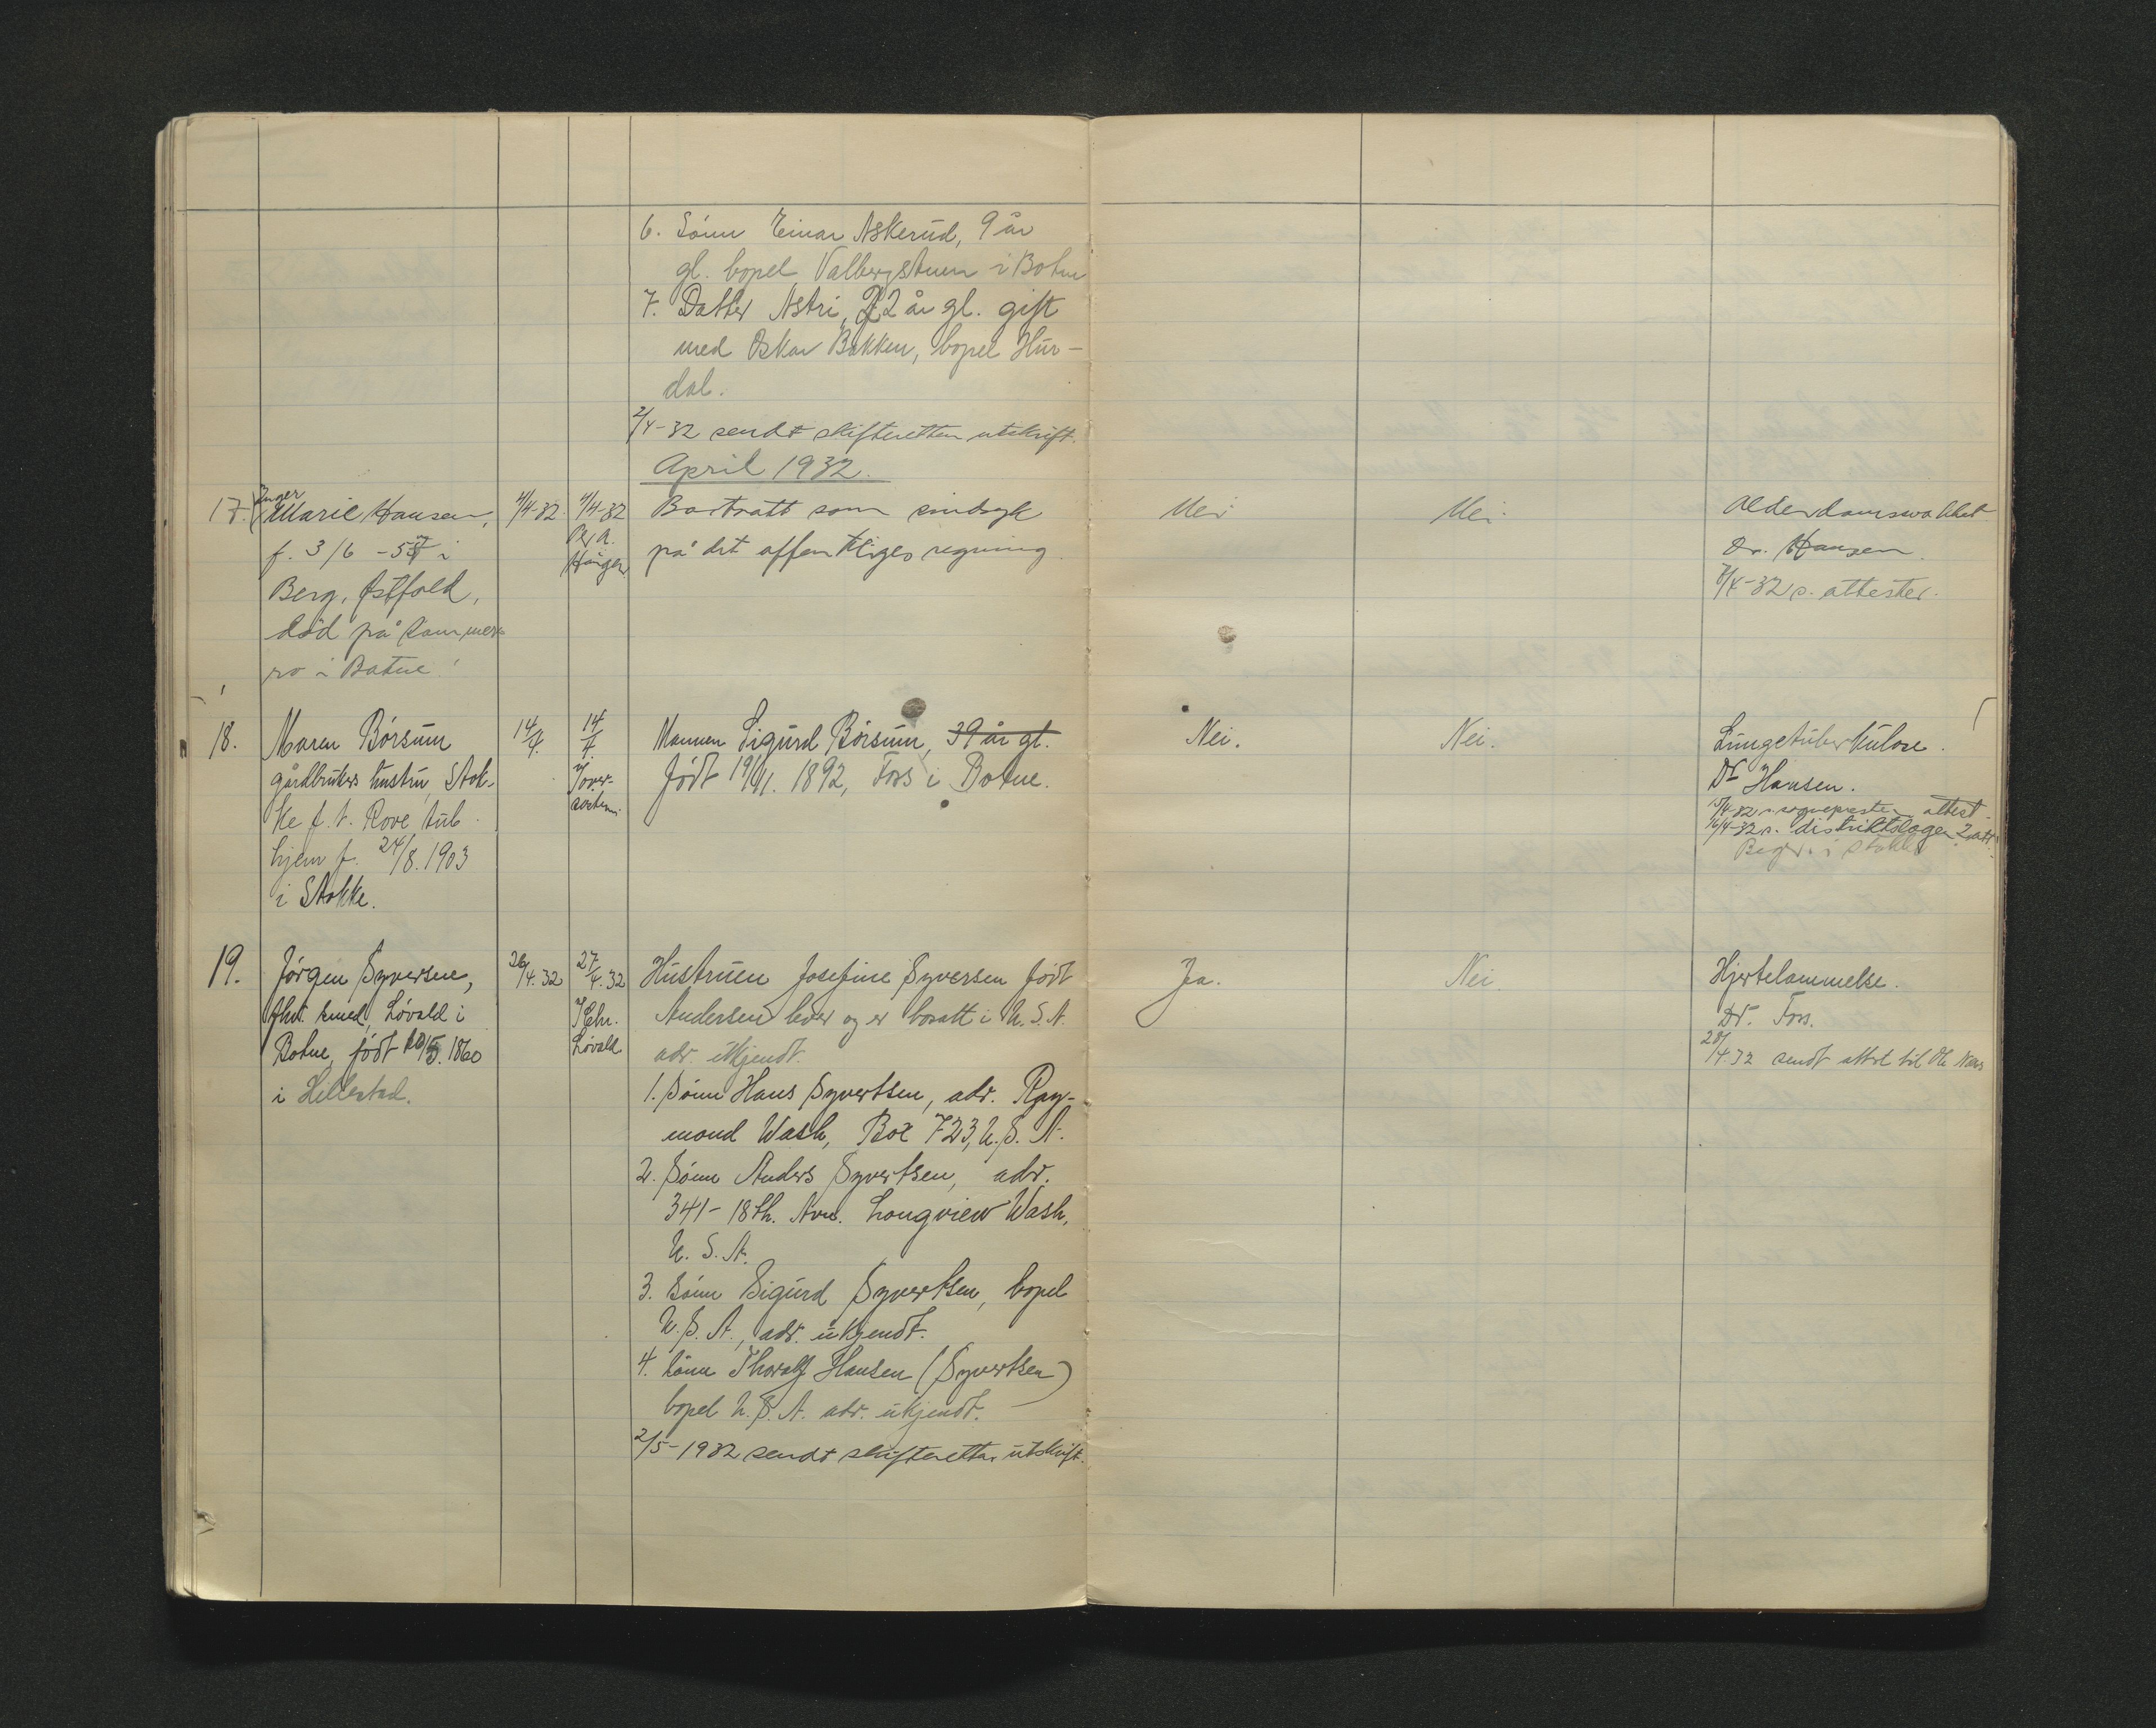 6. Sönn Einar Askerud, 9 år
gl. bopel Valbergstuen i Botne
7. Datter Astri, 22 år gl. gift
med Oskar Bakken, bopel Hur-
dal.
2/4-32 sendt skifteretten utskrift.
April 1932.
17. Inger
Marie Hansen,
f. 3/6 -57 i
Berg, Østfold,
död på Sommer-
ro i Botne
4/4-32.
4/4-32
Per A.
Haugen
Bortsatt som sindsyk
på det offentliges regning.
Nei
Nei
Alderdomssvakhet
Dr. Hansen.
8/4-32 s. attester.
18. Maren Börsum
gårdbrukers hustru, Stok-
ke f. t. Rove tub.
hjem f. 24/8. 1903
i Stokke.
14/4.
14/4.
Mannen Sigurd Börsum, 39 år gl.
födt 19/11. 1892, Foss i Botne.
Nei.
Nei.
Lungetuberkulose.
Dr Hansen.
15/4-32 s. sognepresten attest.
16/4-32 s. distriktslegen 2 att.
Begr. i Stokke
19. Jörgen Syversen,
fhv. smed, Lövald i
Botne, födt 10/5. 1860
i Hillestad.
26/4. 32
27/4. 32
Chr.
Lövald
Hustruen Josefine Syversen födt
Andersen lever og er bosatt i U. S. A.
adr. ukjendt.
1. Sönn Hans Syvertsen, adr. Ray-
mond Wash, Box 723, U. S. A.
2. Sönn Anders Syvertsen, adr.
341 - 18th. Ave. Longview Wash,
U. S. A.
3. Sönn Sigurd Syvertsen, bopel
U. S. A., adr. ukjendt.
4. Sönn Thoralf Hansen (Syvertsen)
bopel U. S. A. adr. ukjendt.
2/5-1932 sendt skifteretten utskrift.
Ja.
Nei.
Hjertelammelse.
Dr. Foss.
28/4 32 sendt attest til